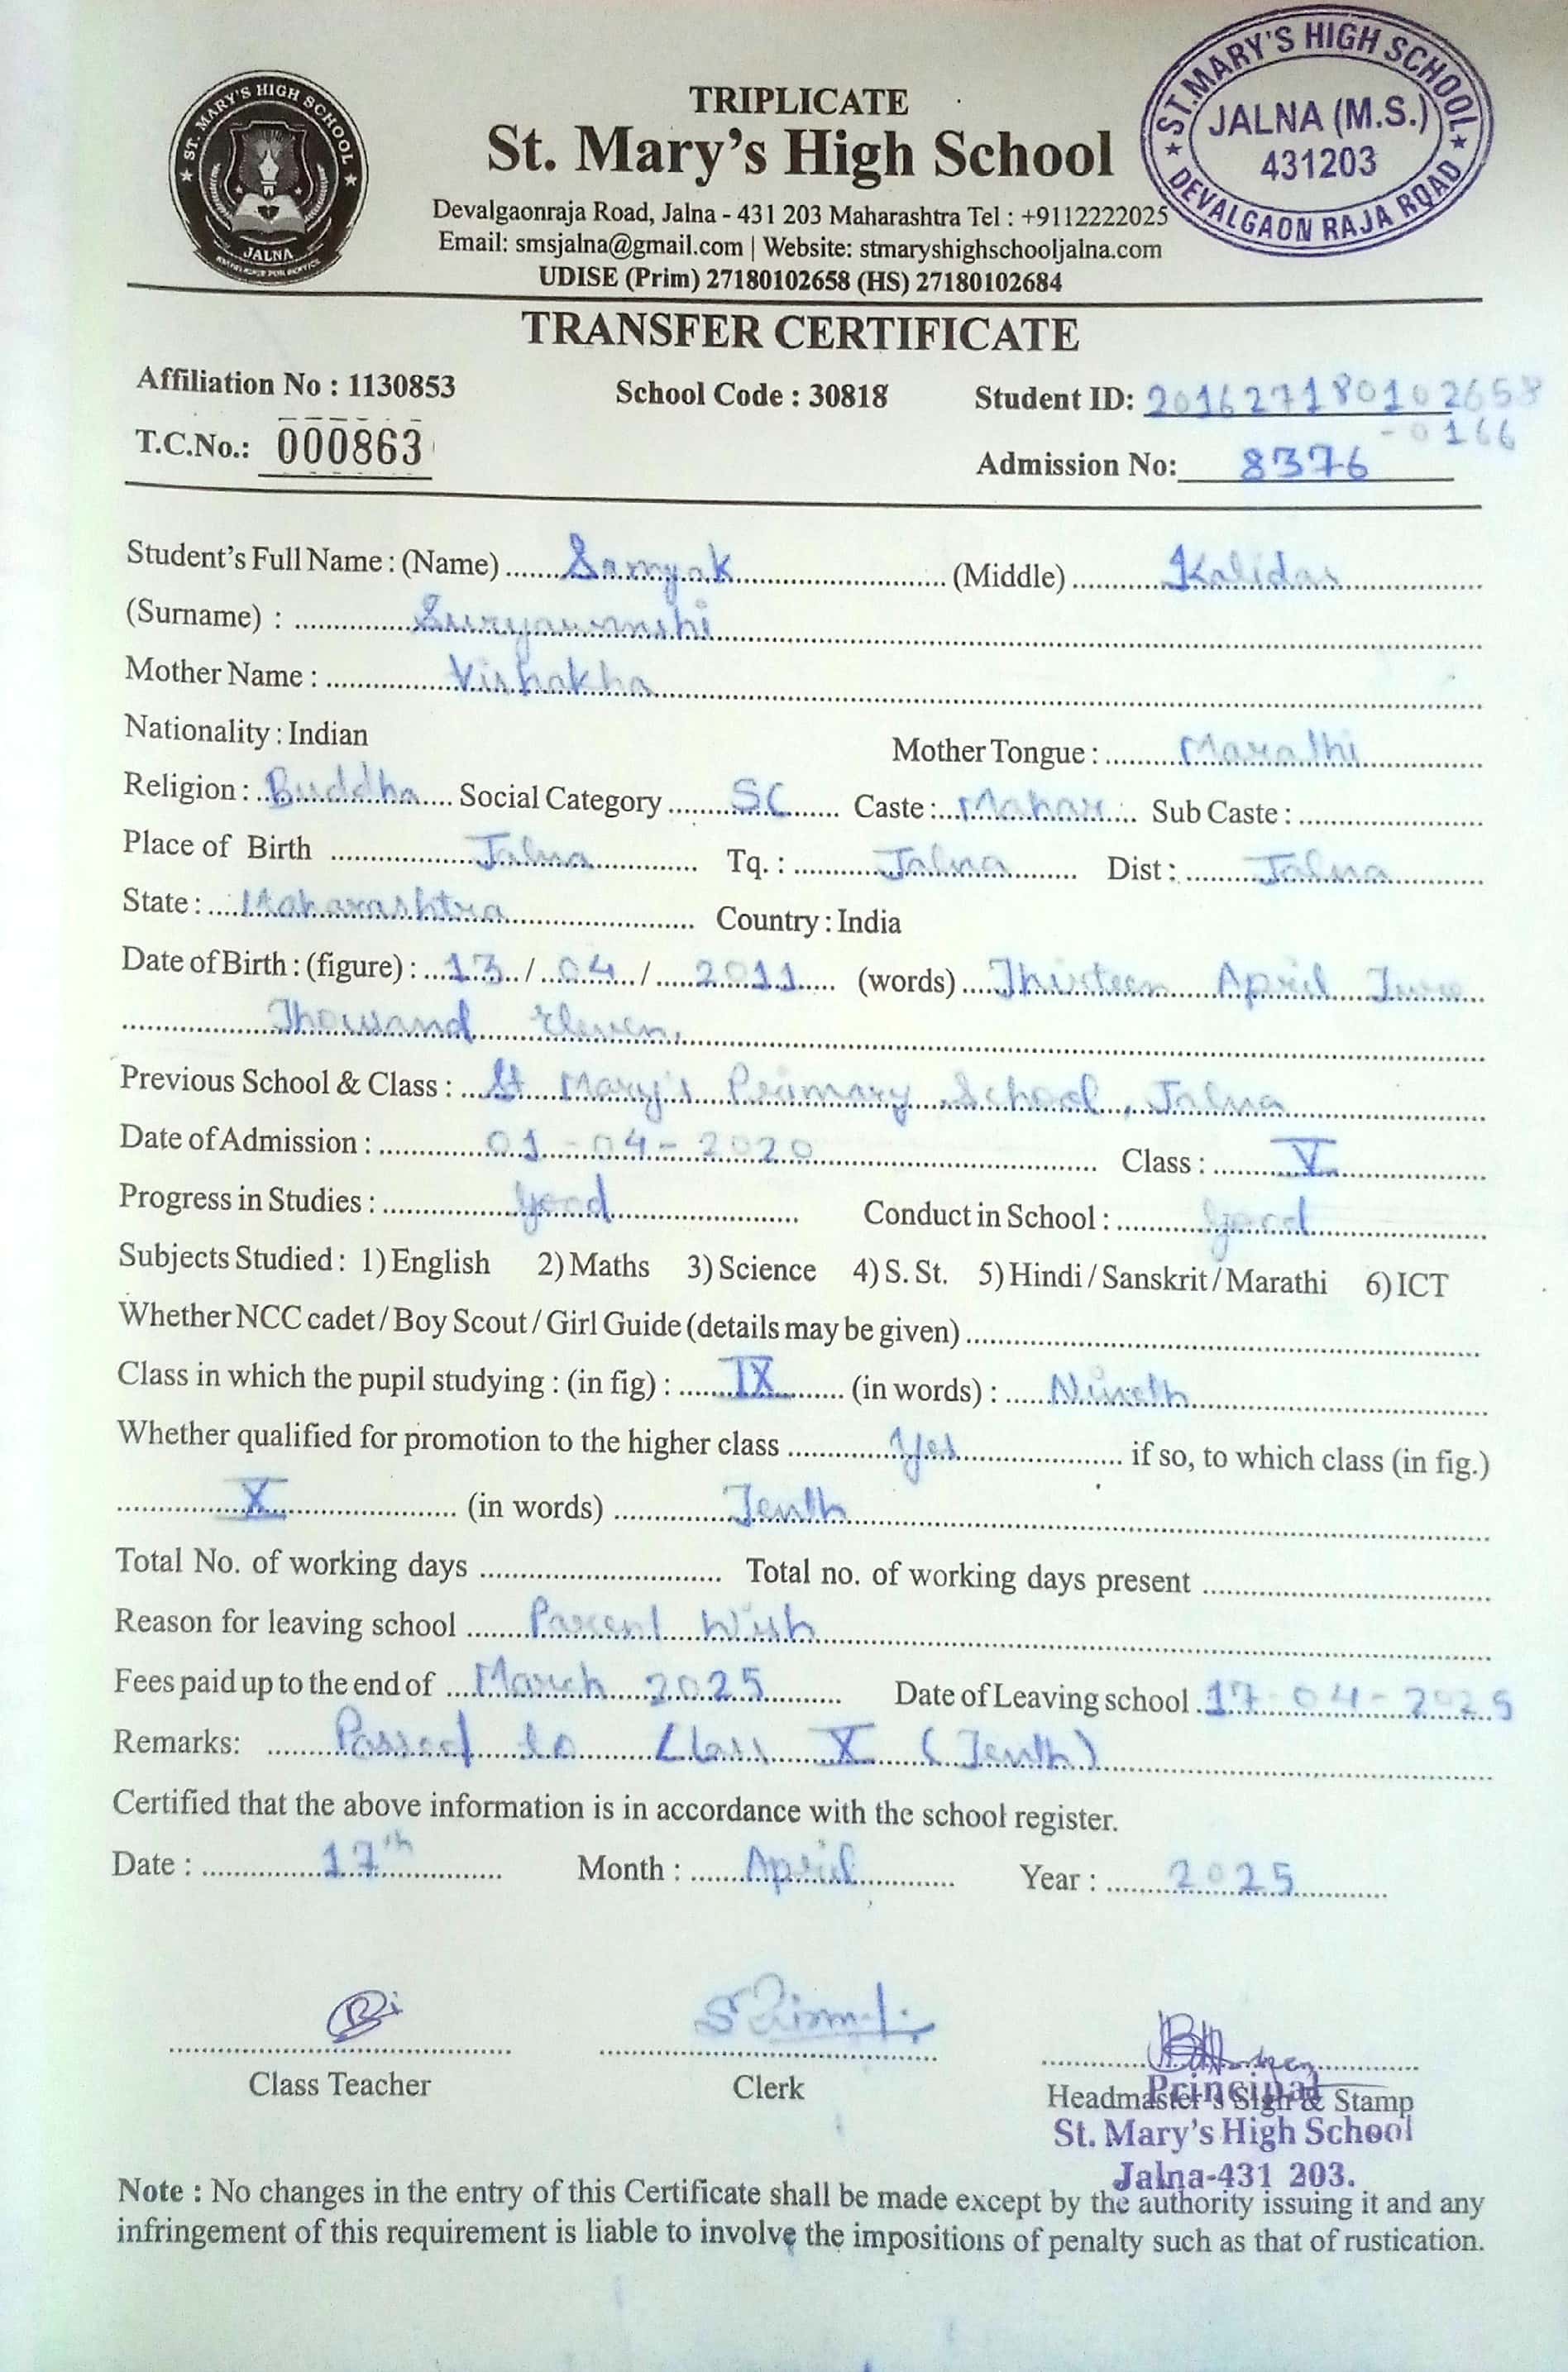 ST. MARY'S HIGH SCHOOL
JALNA
TRIPLICATE
St. Mary's High School
Devalgaonraja Road, Jalna - 431 203 Maharashtra Tel : +9112222025
Email: smsjalna@gmail.com | Website: stmaryshighschooljalna.com
UDISE (Prim) 27180102658 (HS) 27180102684
ST.MARY'S HIGH SCHOOL
JALNA (M.S.)
431203
DEVALGAON RAJA ROAD
TRANSFER CERTIFICATE
Affiliation No : 1130853 School Code : 30818 Student ID: 201627180102658
-0166
T.C.No.: 000863 Admission No: 8376
Student's Full Name : (Name) Samyak (Middle) Kalidas
(Surname) : Suryawanshi
Mother Name : Vishakha
Nationality : Indian Mother Tongue : Marathi
Religion : Buddha Social Category SC Caste : Mahar Sub Caste :
Place of Birth Jalna Tq. : Jalna Dist : Jalna
State : Maharashtra Country : India
Date of Birth : (figure) : 13 / 04 / 2011 (words) Thirteen April Two
Thousand Eleven.
Previous School & Class : St Mary's Primary School, Jalna
Date of Admission : 01-04-2020 Class : V
Progress in Studies : Good Conduct in School : Good
Subjects Studied : 1) English 2) Maths 3) Science 4) S. St. 5) Hindi / Sanskrit / Marathi 6) ICT
Whether NCC cadet / Boy Scout / Girl Guide (details may be given)
Class in which the pupil studying : (in fig) : IX (in words) : Nineth
Whether qualified for promotion to the higher class Yes if so, to which class (in fig.)
X (in words) Tenth
Total No. of working days Total no. of working days present
Reason for leaving school Parent Wish
Fees paid up to the end of March 2025 Date of Leaving school 17-04-2025
Remarks: Passed to Class X (Tenth)
Certified that the above information is in accordance with the school register.
Date : 17th Month : April Year : 2025
Class Teacher Clerk Headmaster's Sign & Stamp
Principal
St. Mary's High School
Jalna-431 203.
Note : No changes in the entry of this Certificate shall be made except by the authority issuing it and any
infringement of this requirement is liable to involve the impositions of penalty such as that of rustication.